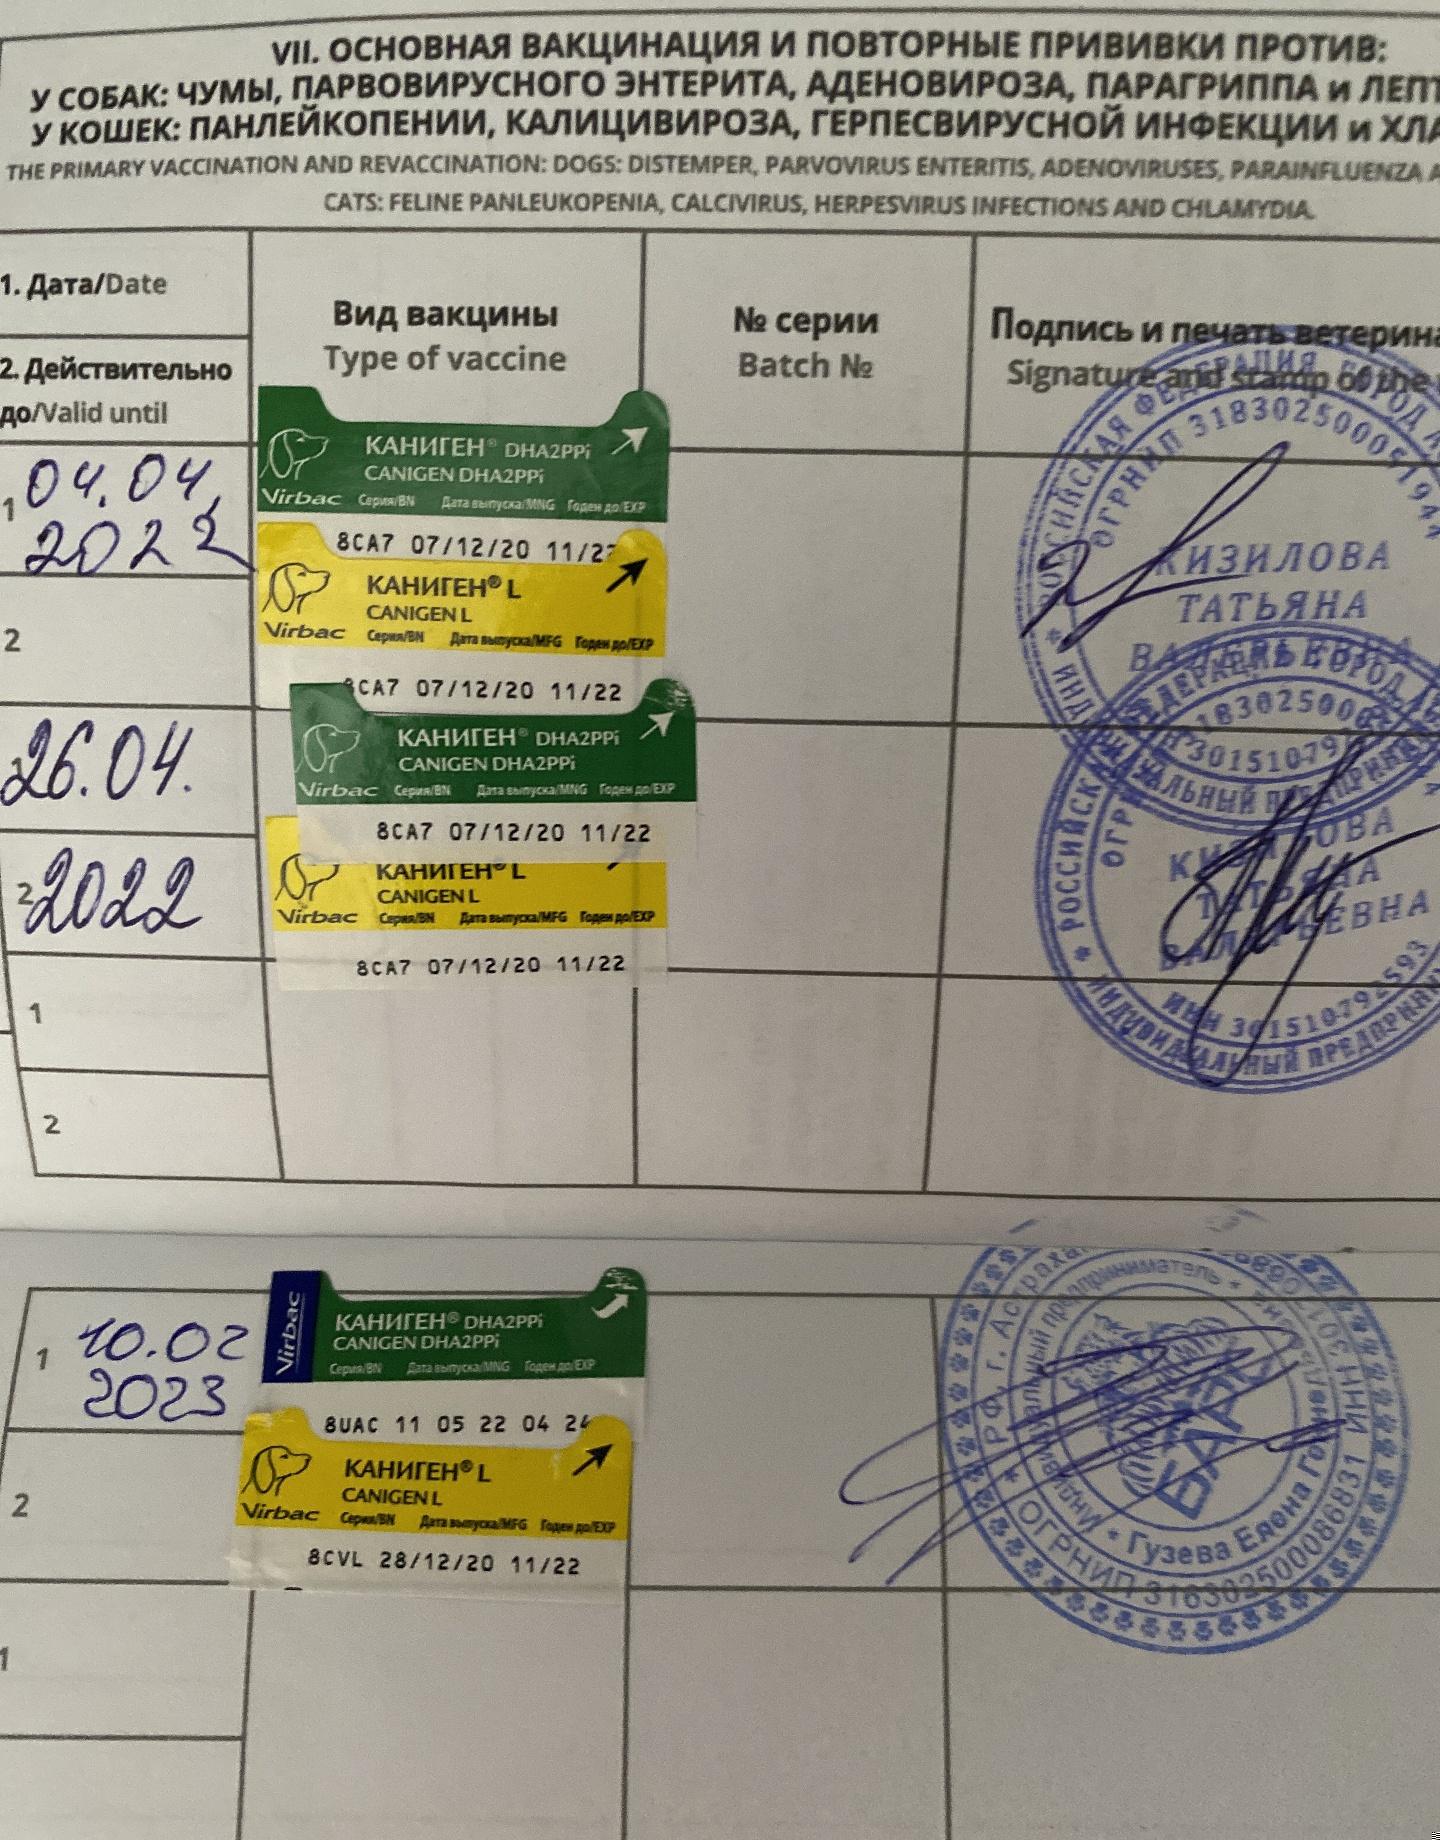 VII. ОСНОВНАЯ ВАКЦИНАЦИЯ И ПОВТОРНЫЕ ПРИВИВКИ ПРОТИВ:
У СОБАК: ЧУМЫ, ПАРВОВИРУСНОГО ЭНТЕРИТА, АДЕНОВИРОЗА, ПАРАГРИППА и ЛЕПТ
У КОШЕК: ПАНЛЕЙКОПЕНИИ, КАЛИЦИВИРОЗА, ГЕРПЕСВИРУСНОЙ ИНФЕКЦИИ и ХЛА
THE PRIMARY VACCINATION AND REVACCINATION: DOGS: DISTEMPER, PARVOVIRUS ENTERITIS, ADENOVIRUSES, PARAINFLUENZA A
CATS: FELINE PANLEUKOPENIA, CALCIVIRUS, HERPESVIRUS INFECTIONS AND CHLAMYDIA.
1. Дата/Date
2. Действительно
до/Valid until
Вид вакцины
Type of vaccine
№ серии
Batch №
Подпись и печать ветерина
Signature and stamp of the
1 04.04.
2022
2
КАНИГЕН® DHA2PPi
CANIGEN DHA2PPi
Virbac Серия/BN Дата выпуска/MNG Годен до/EXP
8CA7 07/12/20 11/22
КАНИГЕН® L
CANIGEN L
Virbac Серия/BN Дата выпуска/MFG Годен до/EXP
8CA7 07/12/20 11/22
РОССИЙСКАЯ ФЕДЕРАЦИЯ ГОРОД
ОГРНИП 318302500051944
КИЗИЛОВА
ТАТЬ�яНА
ВАЛЕРЬЕВНА
1 26.04.
2 2022
КАНИГЕН® DHA2PPi
CANIGEN DHA2PPi
Virbac Серия/BN Дата выпуска/MNG Годен до/EXP
8CA7 07/12/20 11/22
КАНИГЕН® L
CANIGEN L
Virbac Серия/BN Дата выпуска/MFG Годен до/EXP
8CA7 07/12/20 11/22
КИЗИЛОВА
ТАТЬЯНА
ВАЛЕРЬЕВНА
ИНН 301510792593
ИНДИВИДУАЛЬНЫЙ ПРЕДПРИНИ
1
2
1 10.02
2023
2
Virbac
КАНИГЕН® DHA2PPi
CANIGEN DHA2PPi
Серия/BN Дата выпуска/MNG Годен до/EXP
8UAC 11 05 22 04 24
КАНИГЕН® L
CANIGEN L
Virbac Серия/BN Дата выпуска/MFG Годен до/EXP
8CVL 28/12/20 11/22
РФ, г. Астраха
Индивидуальный предприниматель
Гузева Елена
ОГРНИП 316302500086831 ИНН
1